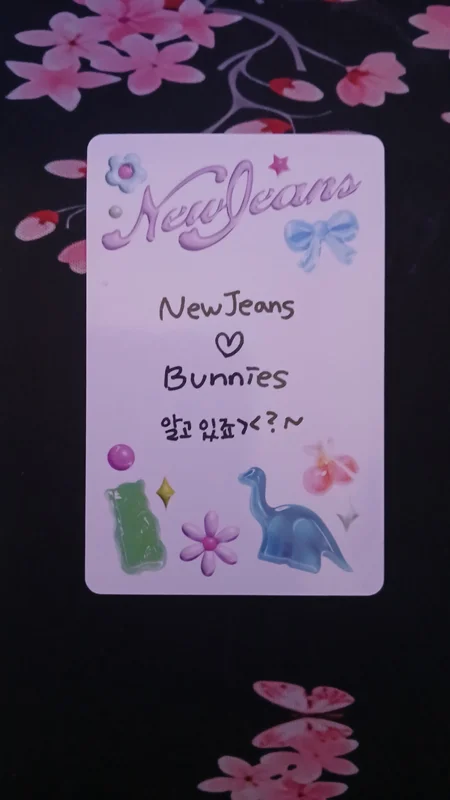 NewJeans
NewJeans
♡
Bunnies
알고 있죠><?~